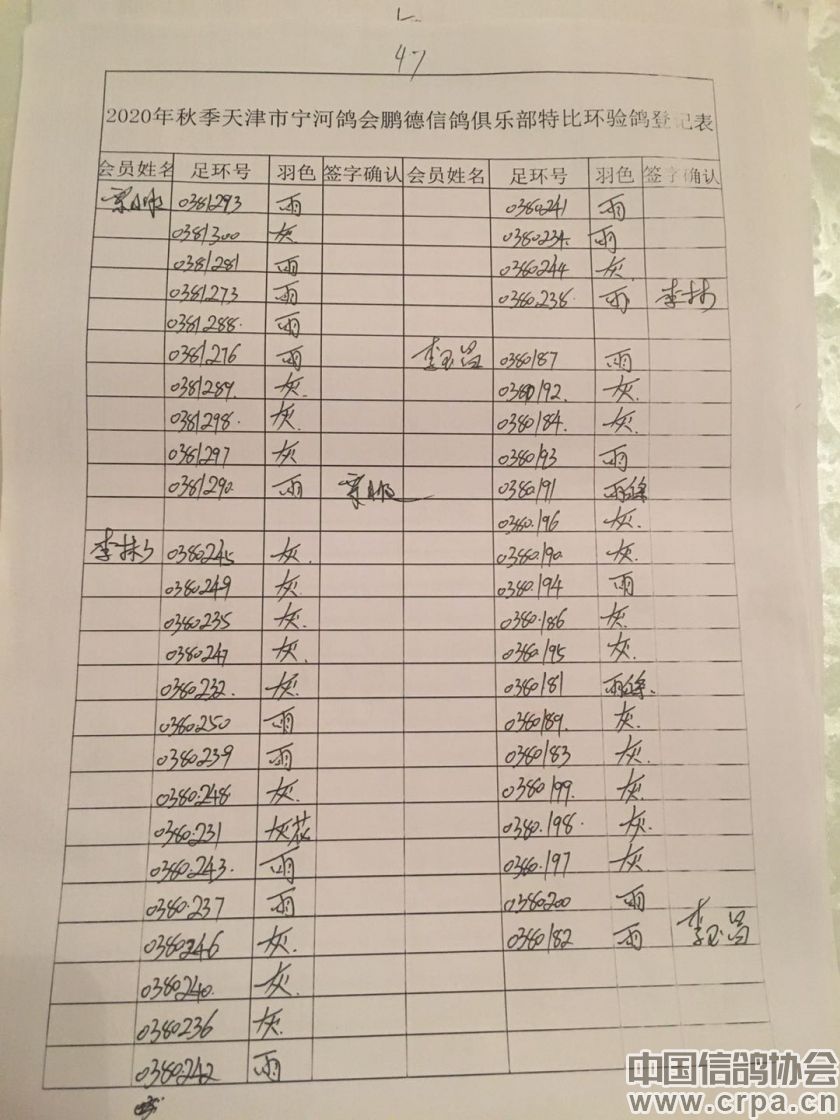 47
2020年秋季天津市宁河鸽会鹏德信鸽俱乐部特比环验鸽登记表
会员姓名 足环号 羽色 签字确认 会员姓名 足环号 羽色 签字确认
0381293 雨 0380241 雨
0381300 灰 0380234. 雨
0381281 雨 0380244 灰
0381273 雨 0380238. 雨 李林
0381288. 雨
0381276 雨 李玉昌 0380187 雨
0381289. 灰 0380192. 灰.
0381298. 灰. 0380184. 灰.
0381297 灰 0380193. 雨
0381290. 雨 0380191
0380196 灰.
李林 0380245 灰. 0380190. 灰.
0380249 灰. 0380194 雨
0380235 灰. 0380186 灰.
0380247 灰. 0380195 灰.
0380232. 灰. 0380181
0380250 雨 0380189. 灰.
0380239 雨 0380183 灰.
0380248 灰. 0380199. 灰.
0380231 灰花 0380198. 灰.
0380243. 雨 0380197 灰.
0380237 雨 0380200 雨
0380246 灰. 0380182 雨 李玉昌
0380240. 灰.
0380236 灰.
0380242 雨
中国信鸽协会
www.crpa.cn